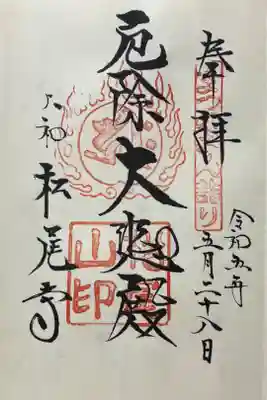 奉拝
令和五年
五月二十八日
厄除大悲殿
大和
松尾寺
山印